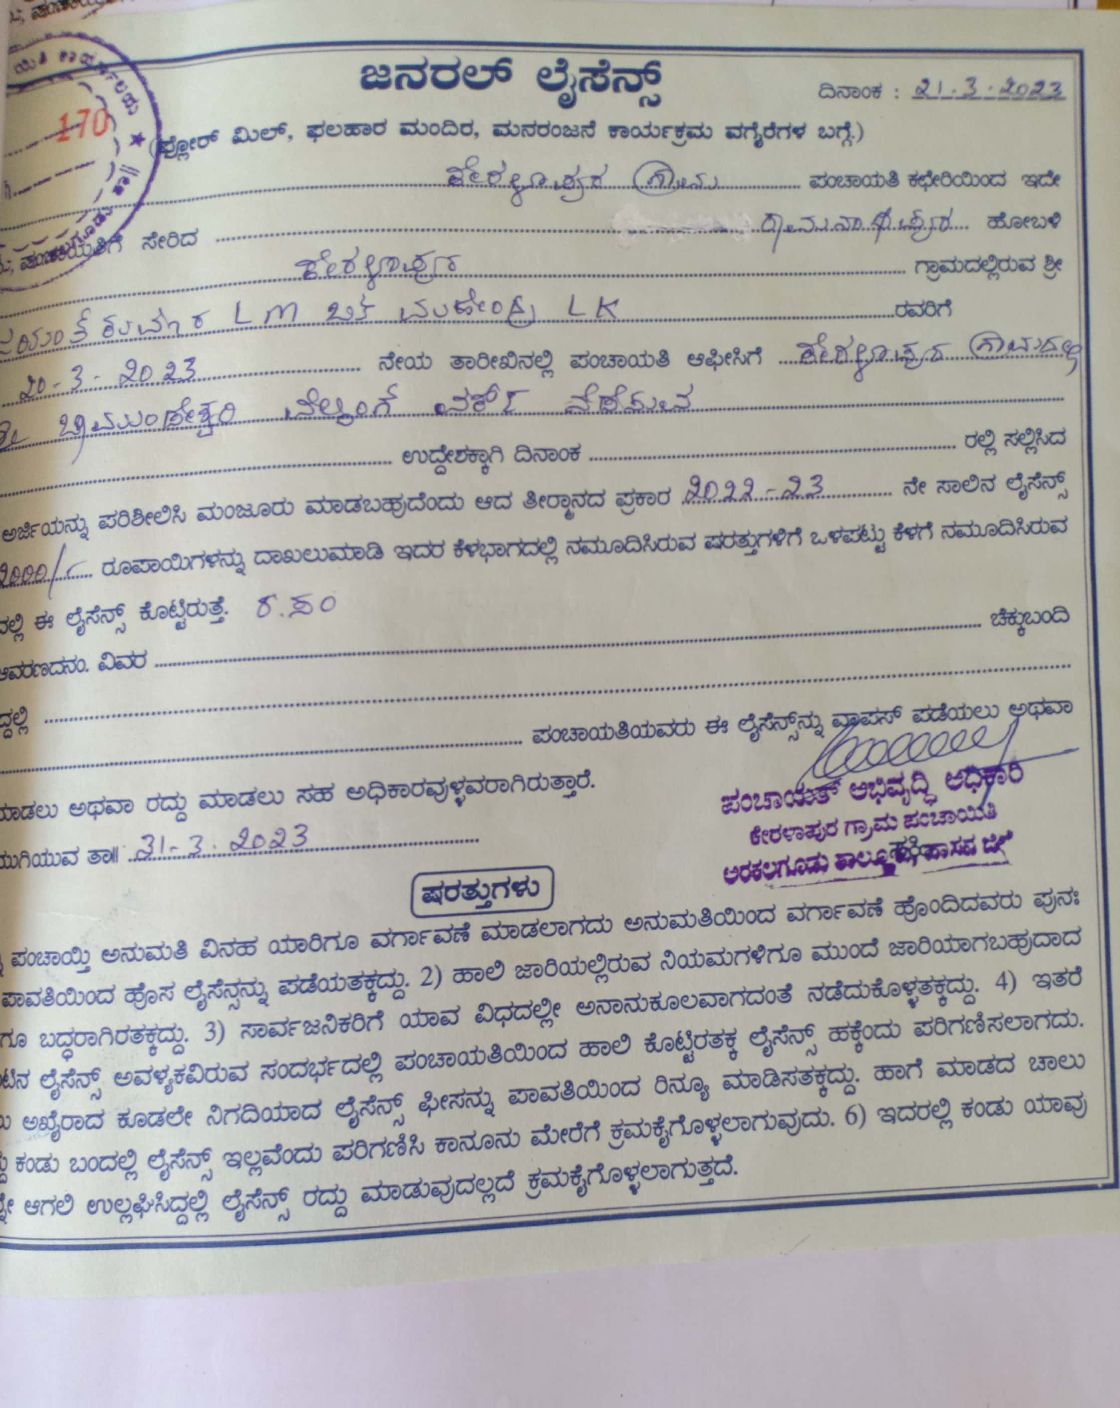 ಜನರಲ್ ಲೈಸೆನ್ಸ್
ದಿನಾಂಕ : 21-3-2023
170
(ಫ್ಲೋರ್ ಮಿಲ್, ಫಲಹಾರ ಮಂದಿರ, ಮನರಂಜನೆ ಕಾರ್ಯಕ್ರಮ ವಗೈರೆಗಳ ಬಗ್ಗೆ)
ಕೇರಳಾಪುರ ಗ್ರಾಮ ಪಂಚಾಯತಿ ಕಛೇರಿಯಿಂದ ಇದೇ
ಪಂಚಾಯತಿಗೆ ಸೇರಿದ ರಾಮನಾಥಪುರ ಹೋಬಳಿ
ಕೇರಳಾಪುರ ಗ್ರಾಮದಲ್ಲಿರುವ ಶ್ರೀ
LM ಬಿನ್ LK ರವರಿಗೆ
20-3-2023 ನೇಯ ತಾರೀಖಿನಲ್ಲಿ ಪಂಚಾಯತಿ ಆಫೀಸಿಗೆ ಕೇರಳಾಪುರ ಗ್ರಾಮದಲ್ಲಿ
ಶ್ರೀ ಚಾಮುಂಡೇಶ್ವರಿ ವೆಲ್ಡಿಂಗ್ ವರ್ಕ್ಸ್ ನಡೆಸುವ
ಉದ್ದೇಶಕ್ಕಾಗಿ ದಿನಾಂಕ ರಲ್ಲಿ ಸಲ್ಲಿಸಿದ
ಅರ್ಜಿಯನ್ನು ಪರಿಶೀಲಿಸಿ ಮಂಜೂರು ಮಾಡಬಹುದೆಂದು ಆದ ತೀರ್ಮಾನದ ಪ್ರಕಾರ 2022-23 ನೇ ಸಾಲಿನ ಲೈಸೆನ್ಸ್
2000/- ರೂಪಾಯಿಗಳನ್ನು ದಾಖಲುಮಾಡಿ ಇದರ ಕೆಳಭಾಗದಲ್ಲಿ ನಮೂದಿಸಿರುವ ಷರತ್ತುಗಳಿಗೆ ಒಳಪಟ್ಟು ಕೆಳಗೆ ನಮೂದಿಸಿರುವ
ಈ ಲೈಸೆನ್ಸ್ ಕೊಟ್ಟಿರುತ್ತೆ. ರ.ಸಂ
ಆವರಣದನಂ. ವಿವರ ಚೆಕ್ಕುಬಂದಿ
ಪಂಚಾಯತಿಯವರು ಈ ಲೈಸೆನ್ಸ್‌ನ್ನು ವಾಪಸ್ ಪಡೆಯಲು ಅಥವಾ
ಮಾಡಲು ಅಥವಾ ರದ್ದು ಮಾಡಲು ಸಹ ಅಧಿಕಾರವುಳ್ಳವರಾಗಿರುತ್ತಾರೆ.
ಮುಗಿಯುವ ತಾ॥ 31-3-2023
ಪಂಚಾಯತ್ ಅಭಿವೃದ್ಧಿ ಅಧಿಕಾರಿ
ಕೇರಳಾಪುರ ಗ್ರಾಮ ಪಂಚಾಯಿತಿ
ಅರಕಲಗೂಡು ತಾಲ್ಲೂಕು, ಹಾಸನ ಜಿಲ್ಲೆ
ಷರತ್ತುಗಳು
ಪಂಚಾಯ್ತಿ ಅನುಮತಿ ವಿನಹ ಯಾರಿಗೂ ವರ್ಗಾವಣೆ ಮಾಡಲಾಗದು ಅನುಮತಿಯಿಂದ ವರ್ಗಾವಣೆ ಹೊಂದಿದವರು ಪುನಃ
ಪಾವತಿಯಿಂದ ಹೊಸ ಲೈಸೆನ್ಸನ್ನು ಪಡೆಯತಕ್ಕದ್ದು. 2) ಹಾಲಿ ಜಾರಿಯಲ್ಲಿರುವ ನಿಯಮಗಳಿಗೂ ಮುಂದೆ ಜಾರಿಯಾಗಬಹುದಾದ
ಬದ್ಧರಾಗಿರತಕ್ಕದ್ದು. 3) ಸಾರ್ವಜನಿಕರಿಗೆ ಯಾವ ವಿಧದಲ್ಲೀ ಅನಾನುಕೂಲವಾಗದಂತೆ ನಡೆದುಕೊಳ್ಳತಕ್ಕದ್ದು. 4) ಇತರೆ
ಲೈಸೆನ್ಸ್ ಅವಳ್ಯಕವಿರುವ ಸಂದರ್ಭದಲ್ಲಿ ಪಂಚಾಯತಿಯಿಂದ ಹಾಲಿ ಕೊಟ್ಟಿರತಕ್ಕ ಲೈಸೆನ್ಸ್ ಹಕ್ಕೆಂದು ಪರಿಗಣಿಸಲಾಗದು.
ಅಖೈರಾದ ಕೂಡಲೇ ನಿಗದಿಯಾದ ಲೈಸೆನ್ಸ್ ಫೀಸನ್ನು ಪಾವತಿಯಿಂದ ರಿನ್ಯೂ ಮಾಡಿಸತಕ್ಕದ್ದು. ಹಾಗೆ ಮಾಡದ ಚಾಲು
ಕಂಡು ಬಂದಲ್ಲಿ ಲೈಸೆನ್ಸ್ ಇಲ್ಲವೆಂದು ಪರಿಗಣಿಸಿ ಕಾನೂನು ಮೇರೆಗೆ ಕ್ರಮಕೈಗೊಳ್ಳಲಾಗುವುದು. 6) ಇದರಲ್ಲಿ ಕಂಡು ಯಾವು
ಆಗಲಿ ಉಲ್ಲಘಿಸಿದ್ದಲ್ಲಿ ಲೈಸೆನ್ಸ್ ರದ್ದು ಮಾಡುವುದಲ್ಲದೆ ಕ್ರಮಕೈಗೊಳ್ಳಲಾಗುತ್ತದೆ.